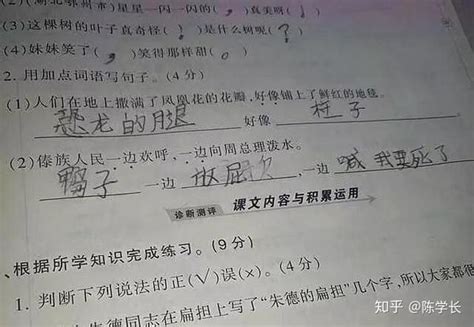 (2)(湖北鄂州市)星星一闪一闪的(,)真美啊(!)
(3)这棵树的叶子真奇怪(!)是什么树呢(?)
(4)妹妹笑了(,)笑得那样甜(。)
2. 用加点词语写句子。(4分)
(1)人们在地上撒满了凤凰花的花瓣,好像铺上了鲜红的地毯。
恐龙的腿 好像 柱子
(2)傣族人民一边欢呼,一边向周总理泼水。
鸭子 一边 抠屁 一边 喊我要死了
诊断测评 课文内容与积累运用
、根据所学知识完成练习。(9分)
1. 判断下列说法的正(√)误(×)。(4分)
朱德同志在扁担上写了“朱德的扁担”几个字,所以大家都很
知乎 @陈学长